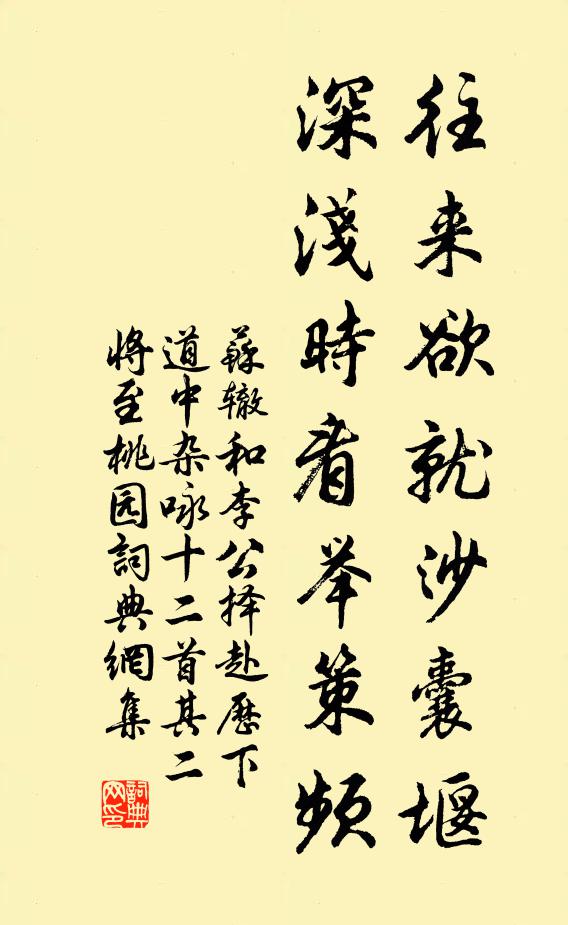 往来欲就沙囊堰
深淺時看举策频
蘇辙和李公择赴歷下
道中杂咏十二首其二
将至桃园詞典網集
詞典
网印